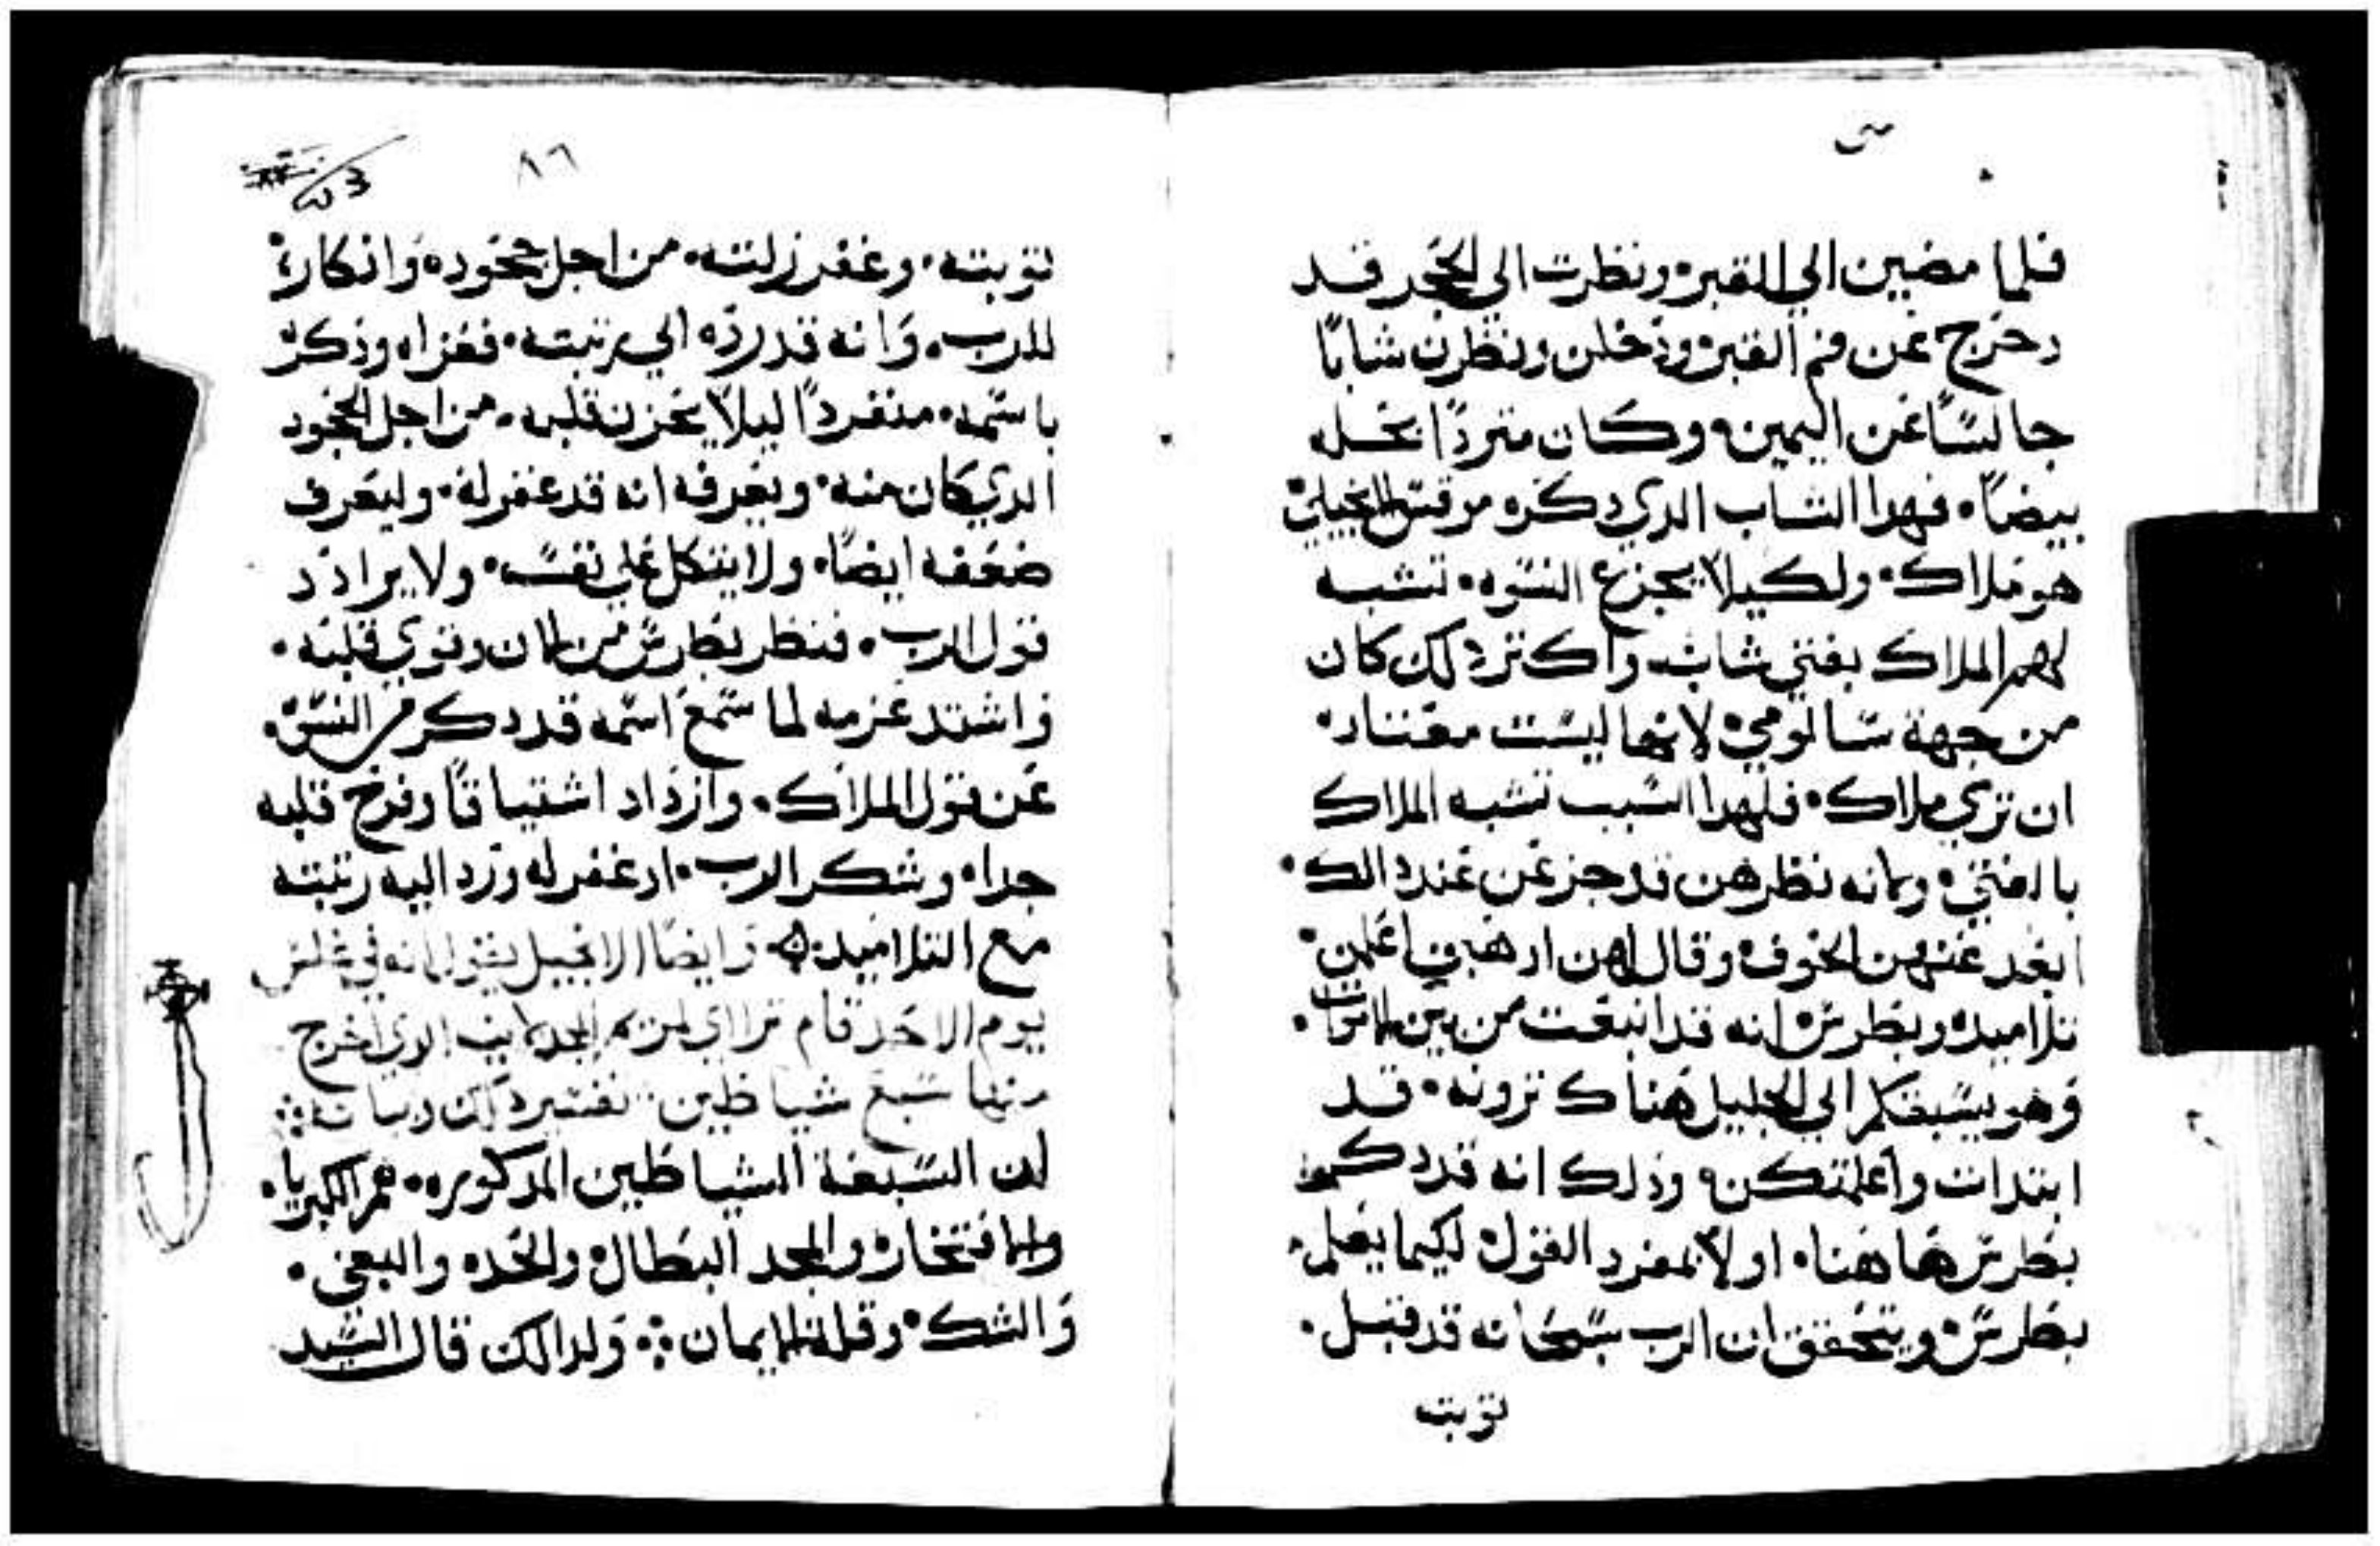 فلما مضين الي القبر ونظرت الي الحجر قد
دحرج عن فم القبر ودخلن ونظرن شابًا
جالسًا عن اليمين وكان متردًا بحله
بيضًا. فهدا الشاب الدي دكره مرقس الانجيلي
هو ملاك. ولكيلا يجزع النسوه. تشبه
لهم الملاك بفتي شاب واكتر دلك كان
من جهة سالومي لانها ليست معتاد
ان تري ملاك. فلهدا السبب تشبه الملاك
بالفتي وانه نظرهن قد جزعن عند دالك.
ابعد عنهن الخوف وقال لهن ادهبن اعلمن.
تلاميده وبطرس انه قد انبعت من بين الاموات.
وهو يسبقكم الي الجليل هناك ترونه. قد
ابتدات واعلمتكن ودلك انه قد دكر
بطرس هاهنا. اولا بمفرد القول لكيما يعلم.
بطرس ويتحقق ان الرب سبحانه قد قبل.
توبته
٨٦
53
توبته. وغفر زلته. من اجل جحوده وانكاره
للرب. وانه قد رده الي مرتبته. فعزاه ودكره
باسمه. منفردًا ليلا يحزن قلبه. من اجل الجحود
الدي كان منه. ويعرفه انه قد غفر له. وليعرف
ضعفه ايضًا. ولا يتكل علي نفسه. ولا يرادد
قول الرب. فنظر بطرس من الان وقوي قلبه.
واشتد عزمه لما سمع اسمه قد دكر من النسوه.
عن قول الملاك. وازداد اشتياقًا وفرح قلبه
جدا. وشكر الرب. اد غفر له ورد اليه رتبته
مع التلاميد. وايضًا الانجيل يقول انه في غلس
يوم الاحد قام تراي لمريم المجدلانيه الدي اخرج
منها سبع شياطين. تفسير دلك وبيانه
ان السبعة الشياطين المدكوره. هم الكبريا.
والافتخار والمجد البطال والحده والبغي.
والشك. وقلة الايمان. ولدالك قال السيد